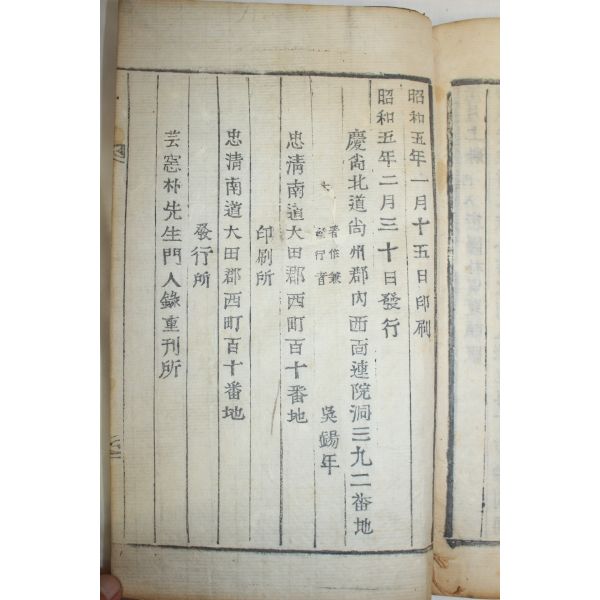 昭和五年一月十五日印刷
昭和五年二月三十日發行
慶尙北道尙州郡內西面連院洞三九二番地
著作兼
發行者
吳錫年
忠淸南道大田郡西町百十番地
印刷所
忠淸南道大田郡西町百十番地
發行所
芸窓朴先生門人錄重刊所